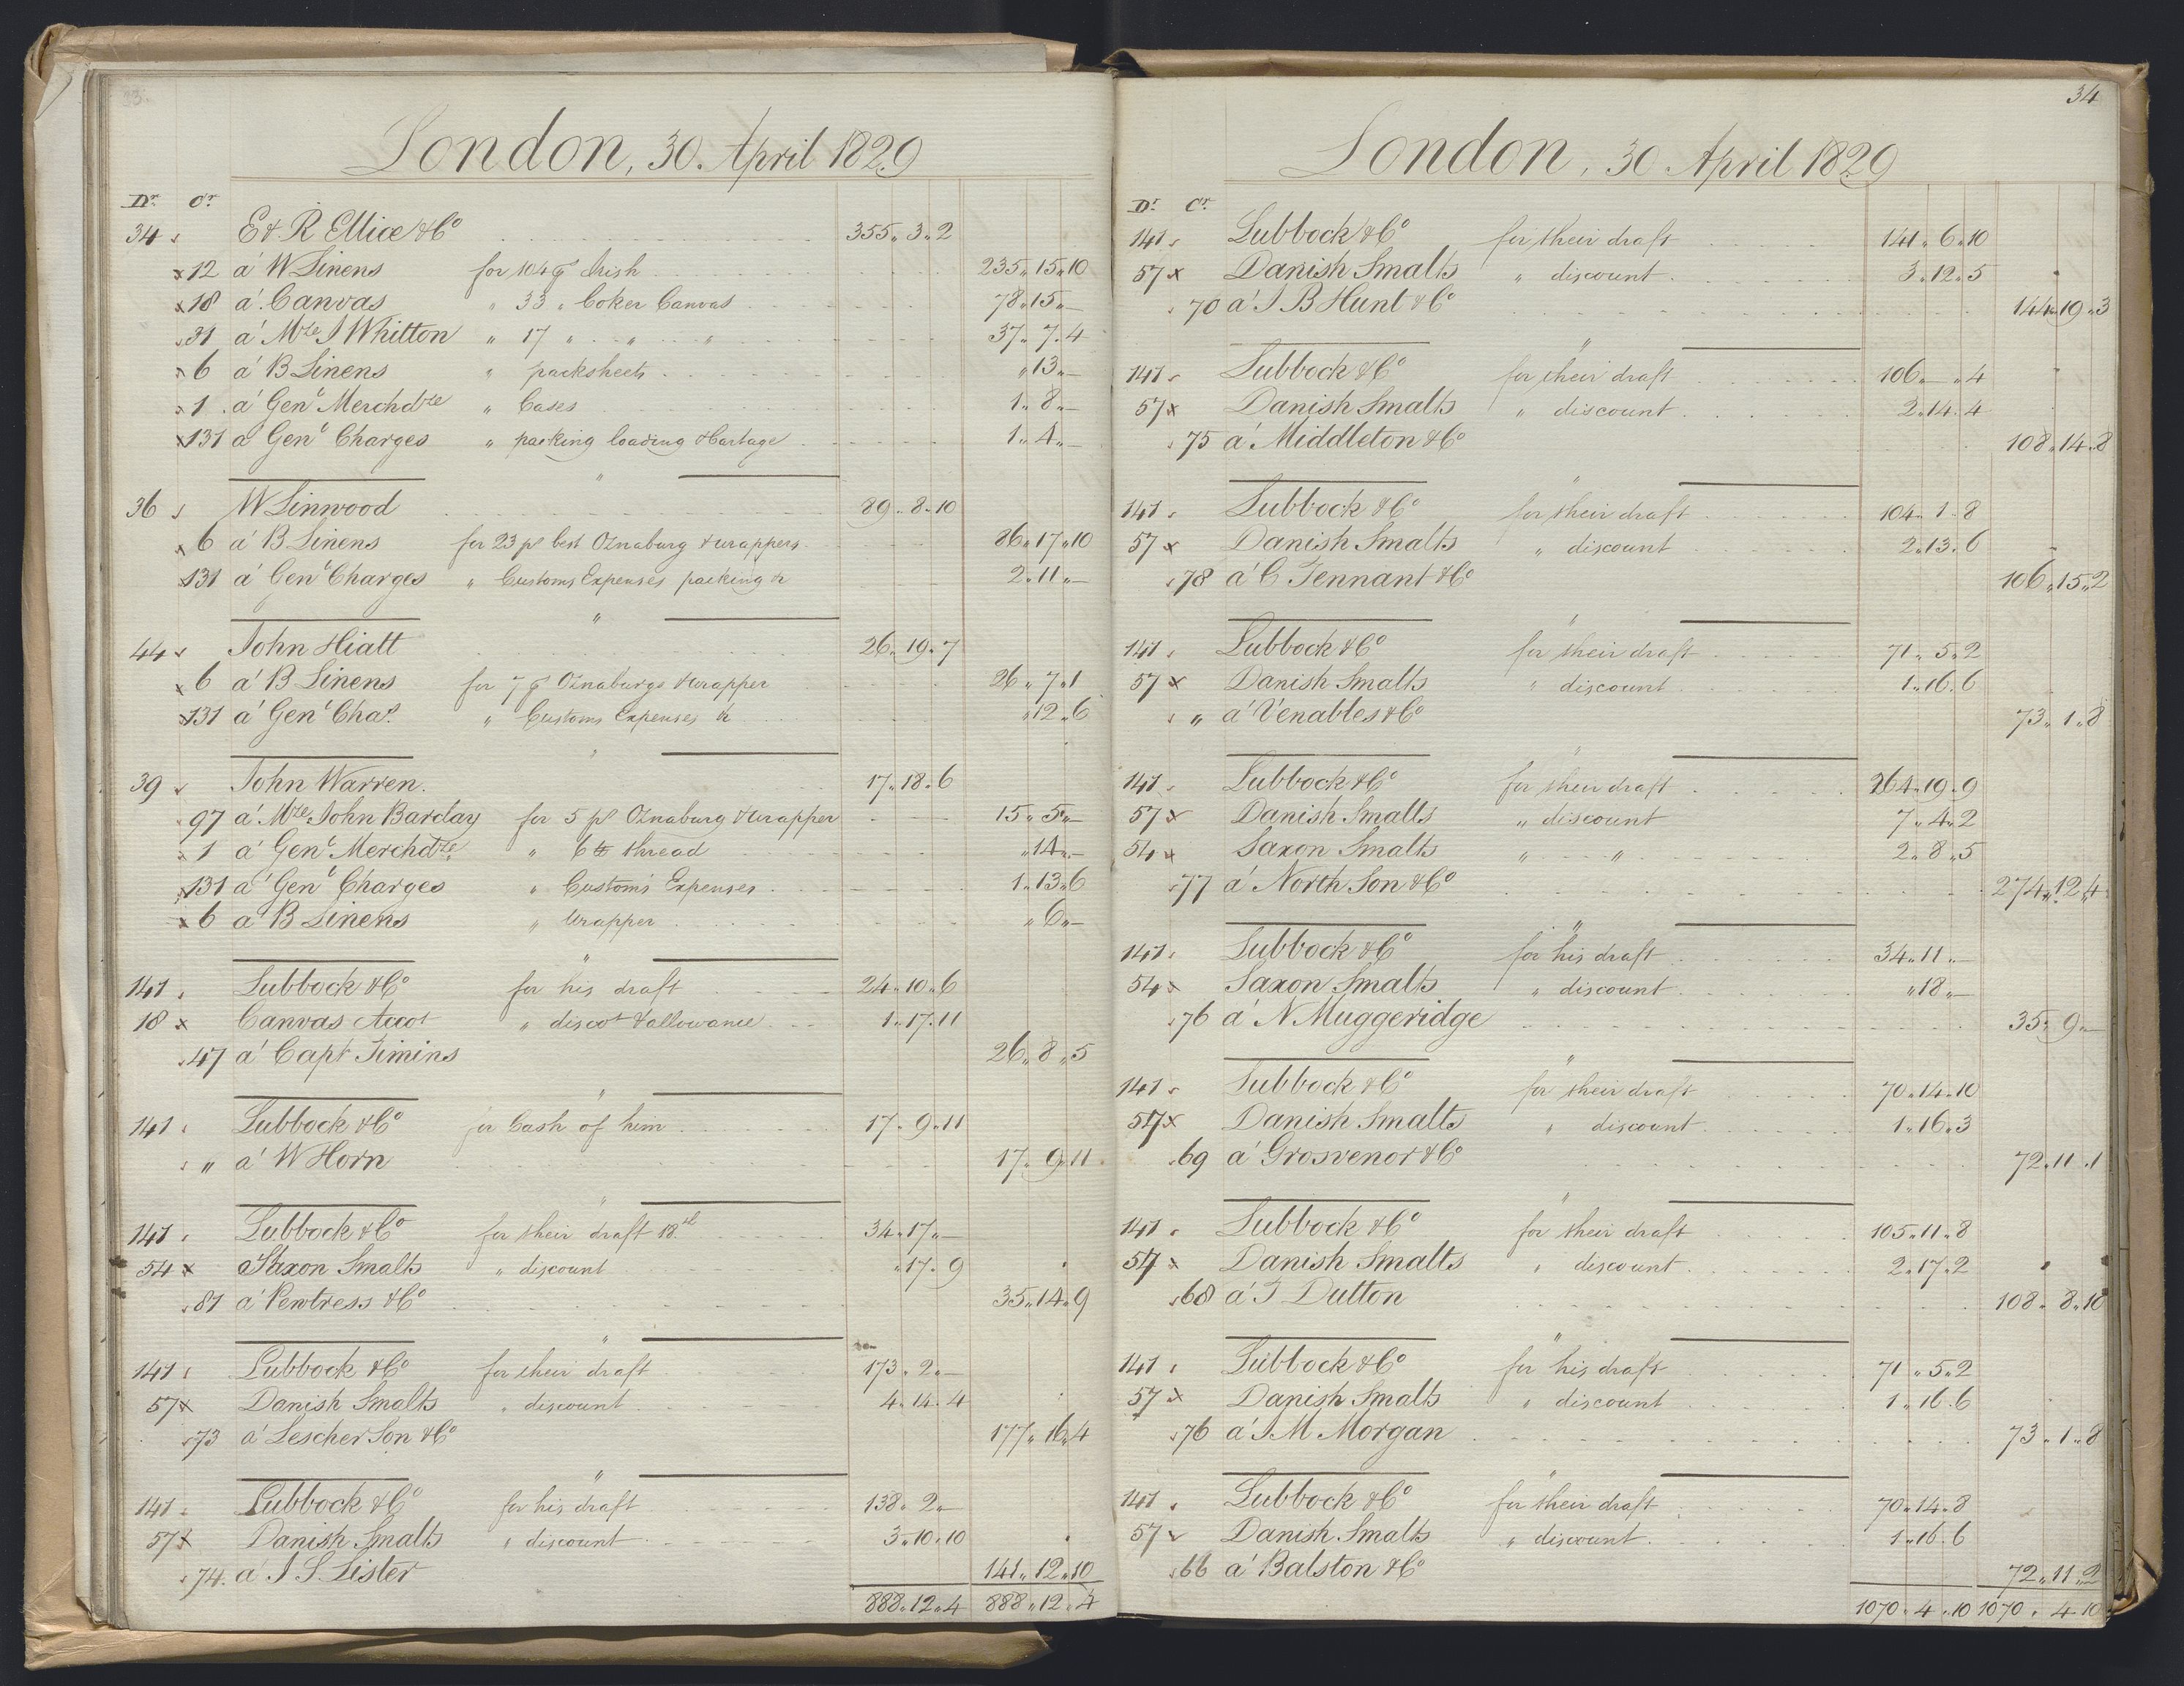 33.
London, 30. April 1829
Dr. Cr.
34 E & R Ellice & Co 355 " 3 " 2
12 a' W Linens for 104 ps Irish 235 " 15 " 10
18 a' Canvas " 33 " Coker Canvas 78 " 15 " —
31 a' Mdze J Whitton " 17 " " " 37 " 7 " 4
6 a' B Linens " packsheets " 13 " —
1 a' Genl Merchdze " Cases 1 " 8 " —
131 a' Genl Charges " packing loading & Cartage 1 " 4 " —
"
36 W Linwood 89 " 8 " 10
6 a' B Linens for 23 ps best Oznaburg & wrappers 86 " 17 " 10
131 a' Genl Charges " Customs Expenses packing &c 2 " 11 " —
"
44 John Hiatt 26 " 19 " 7
6 a' B Linens for 7 ps Oznaburgs & wrapper 26 " 7 " 1
131 a' Genl Chas. " Customs Expenses &c " 12 " 6
"
39 John Warren. 17 " 18 " 6
97 a' Mdze John Barclay for 5 ps Oznaburg & wrapper 15 " 5 " —
1 a' Genl Merchdze " 6 lb thread " 14 " —
131 a' Genl Charges " Customs Expenses 1 " 13 " 6
6 a' B Linens " wrapper " 6 " —
"
141 Lubbock & Co for his draft 24 " 10 " 6
18 Canvas Accot " discot & allowance 1 " 17 " 11
47 a' Capt Timins 26 " 8 " 5
"
141 Lubbock & Co for Cash of him 17 " 9 " 11
" a' W Horn 17 " 9 " 11
"
141 Lubbock & Co for their draft 18th 34 " 17 " —
54 Saxon Smalts " discount " 17 " 9
81 a' Pewtress & Co 35 " 14 " 9
"
141 Lubbock & Co for their draft 173 " 2 " —
57 Danish Smalts " discount 4 " 14 " 4
73 a' Lescher Son & Co 177 " 16 " 4
"
141 Lubbock & Co for his draft 138 " 2 " —
57 Danish Smalts " discount 3 " 10 " 10
74. a' J S Lister 141 " 12 " 10
888 " 12 " 4 888 " 12 " 4
34
London, 30 April 1829
Dr. Cr.
141 Lubbock & Co for their draft 141 " 6 " 10
57 Danish Smalts " discount 3 " 12 " 5
70 a' J B Hunt & Co 144 " 19 " 3
"
141 Lubbock & Co for their draft 106 " — " 4
57 Danish Smalts " discount 2 " 14 " 4
75 a' Middleton & Co 108 " 14 " 8
"
141 Lubbock & Co for their draft 104 " 1 " 8
57 Danish Smalts " discount 2 " 13 " 6
78 a' C Tennant & Co 106 " 15 " 2
"
141 Lubbock & Co for their draft 71 " 5 " 2
57 Danish Smalts " discount 1 " 16 " 6
" a' Venables & Co 73 " 1 " 8
"
141 Lubbock & Co for their draft 264 " 19 " 9
57 Danish Smalts " discount 7 " 4 " 2
54 Saxon Smalts " " 2 " 8 " 5
77 a' North Son & Co 274 " 12 " 4
"
141 Lubbock & Co for his draft 34 " 11 " —
54 Saxon Smalts " discount " 18 " —
76 a' N Muggeridge 35 " 9 " —
"
141 Lubbock & Co for their draft 70 " 14 " 10
57 Danish Smalts " discount 1 " 16 " 3
69 a' Grosvenor & Co 72 " 11 " 1
"
141 Lubbock & Co for their draft 105 " 11 " 8
57 Danish Smalts " discount 2 " 17 " 2
68 a' T Dutton 108 " 8 " 10
"
141 Lubbock & Co for his draft 71 " 5 " 2
57 Danish Smalts " discount 1 " 16 " 6
76 a' J M Morgan 73 " 1 " 8
"
141 Lubbock & Co for their draft 70 " 14 " 8
57 Danish Smalts " discount 1 " 16 " 6
66 a' Balston & Co 72 " 11 " 2
1070 " 4 " 10 1070 " 4 " 10